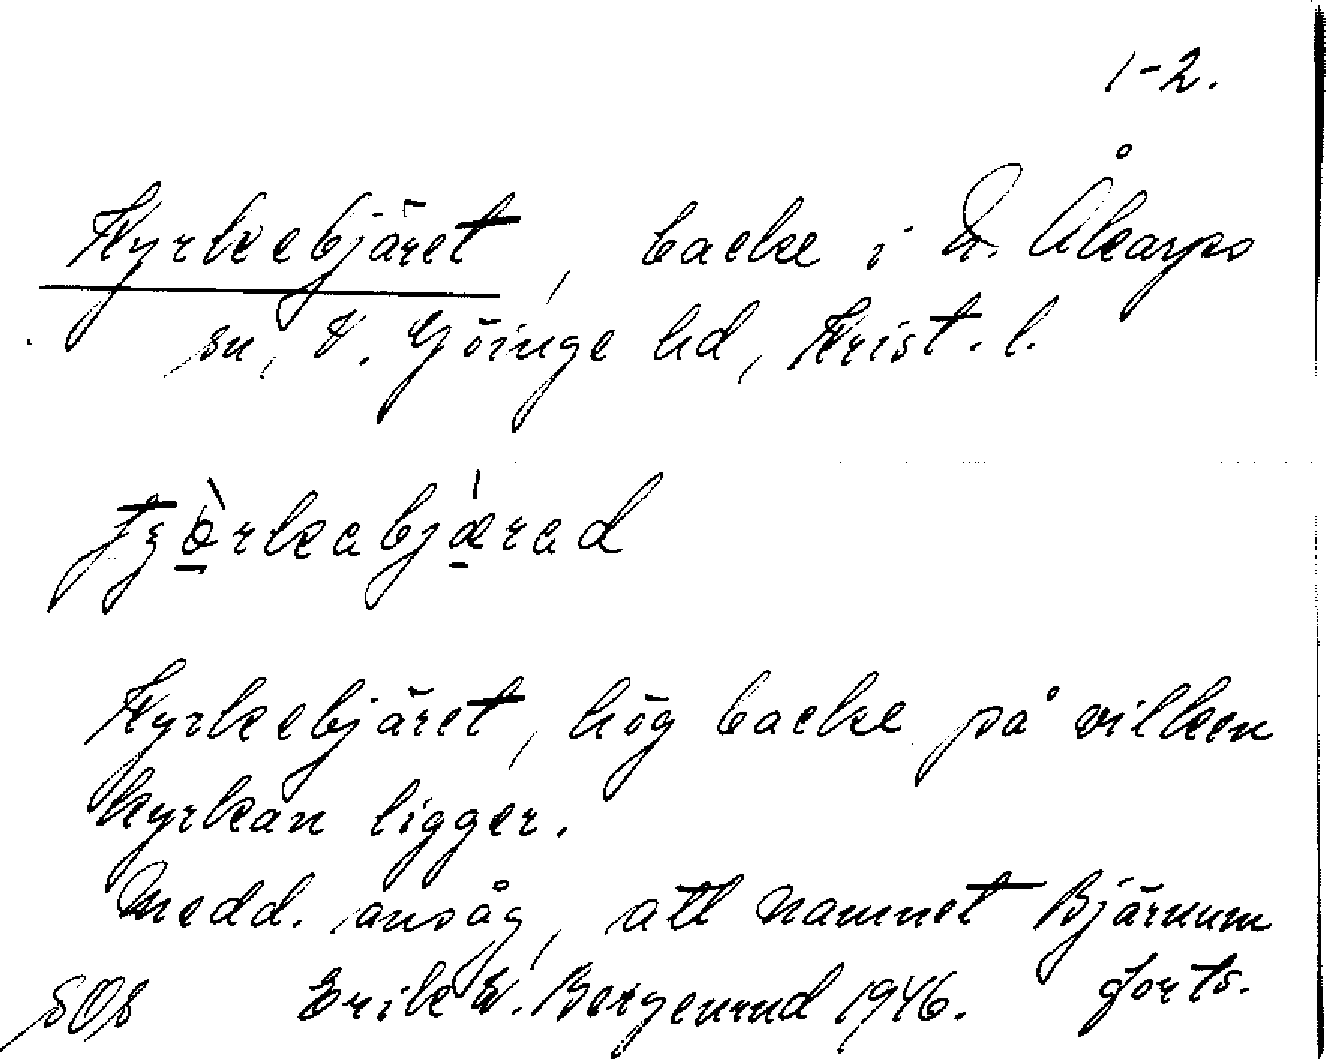 1-2.
Kyrkebjäret, backe i Ö. Åkarps
sn, V. Göinge hd, Krist. l.
Kyrkebjäret, hög backe på vilken
kyrkan ligger.
Medd. ansåg, att namnet Bjärnum
forts.
Erik W. Bergenrud 1946.